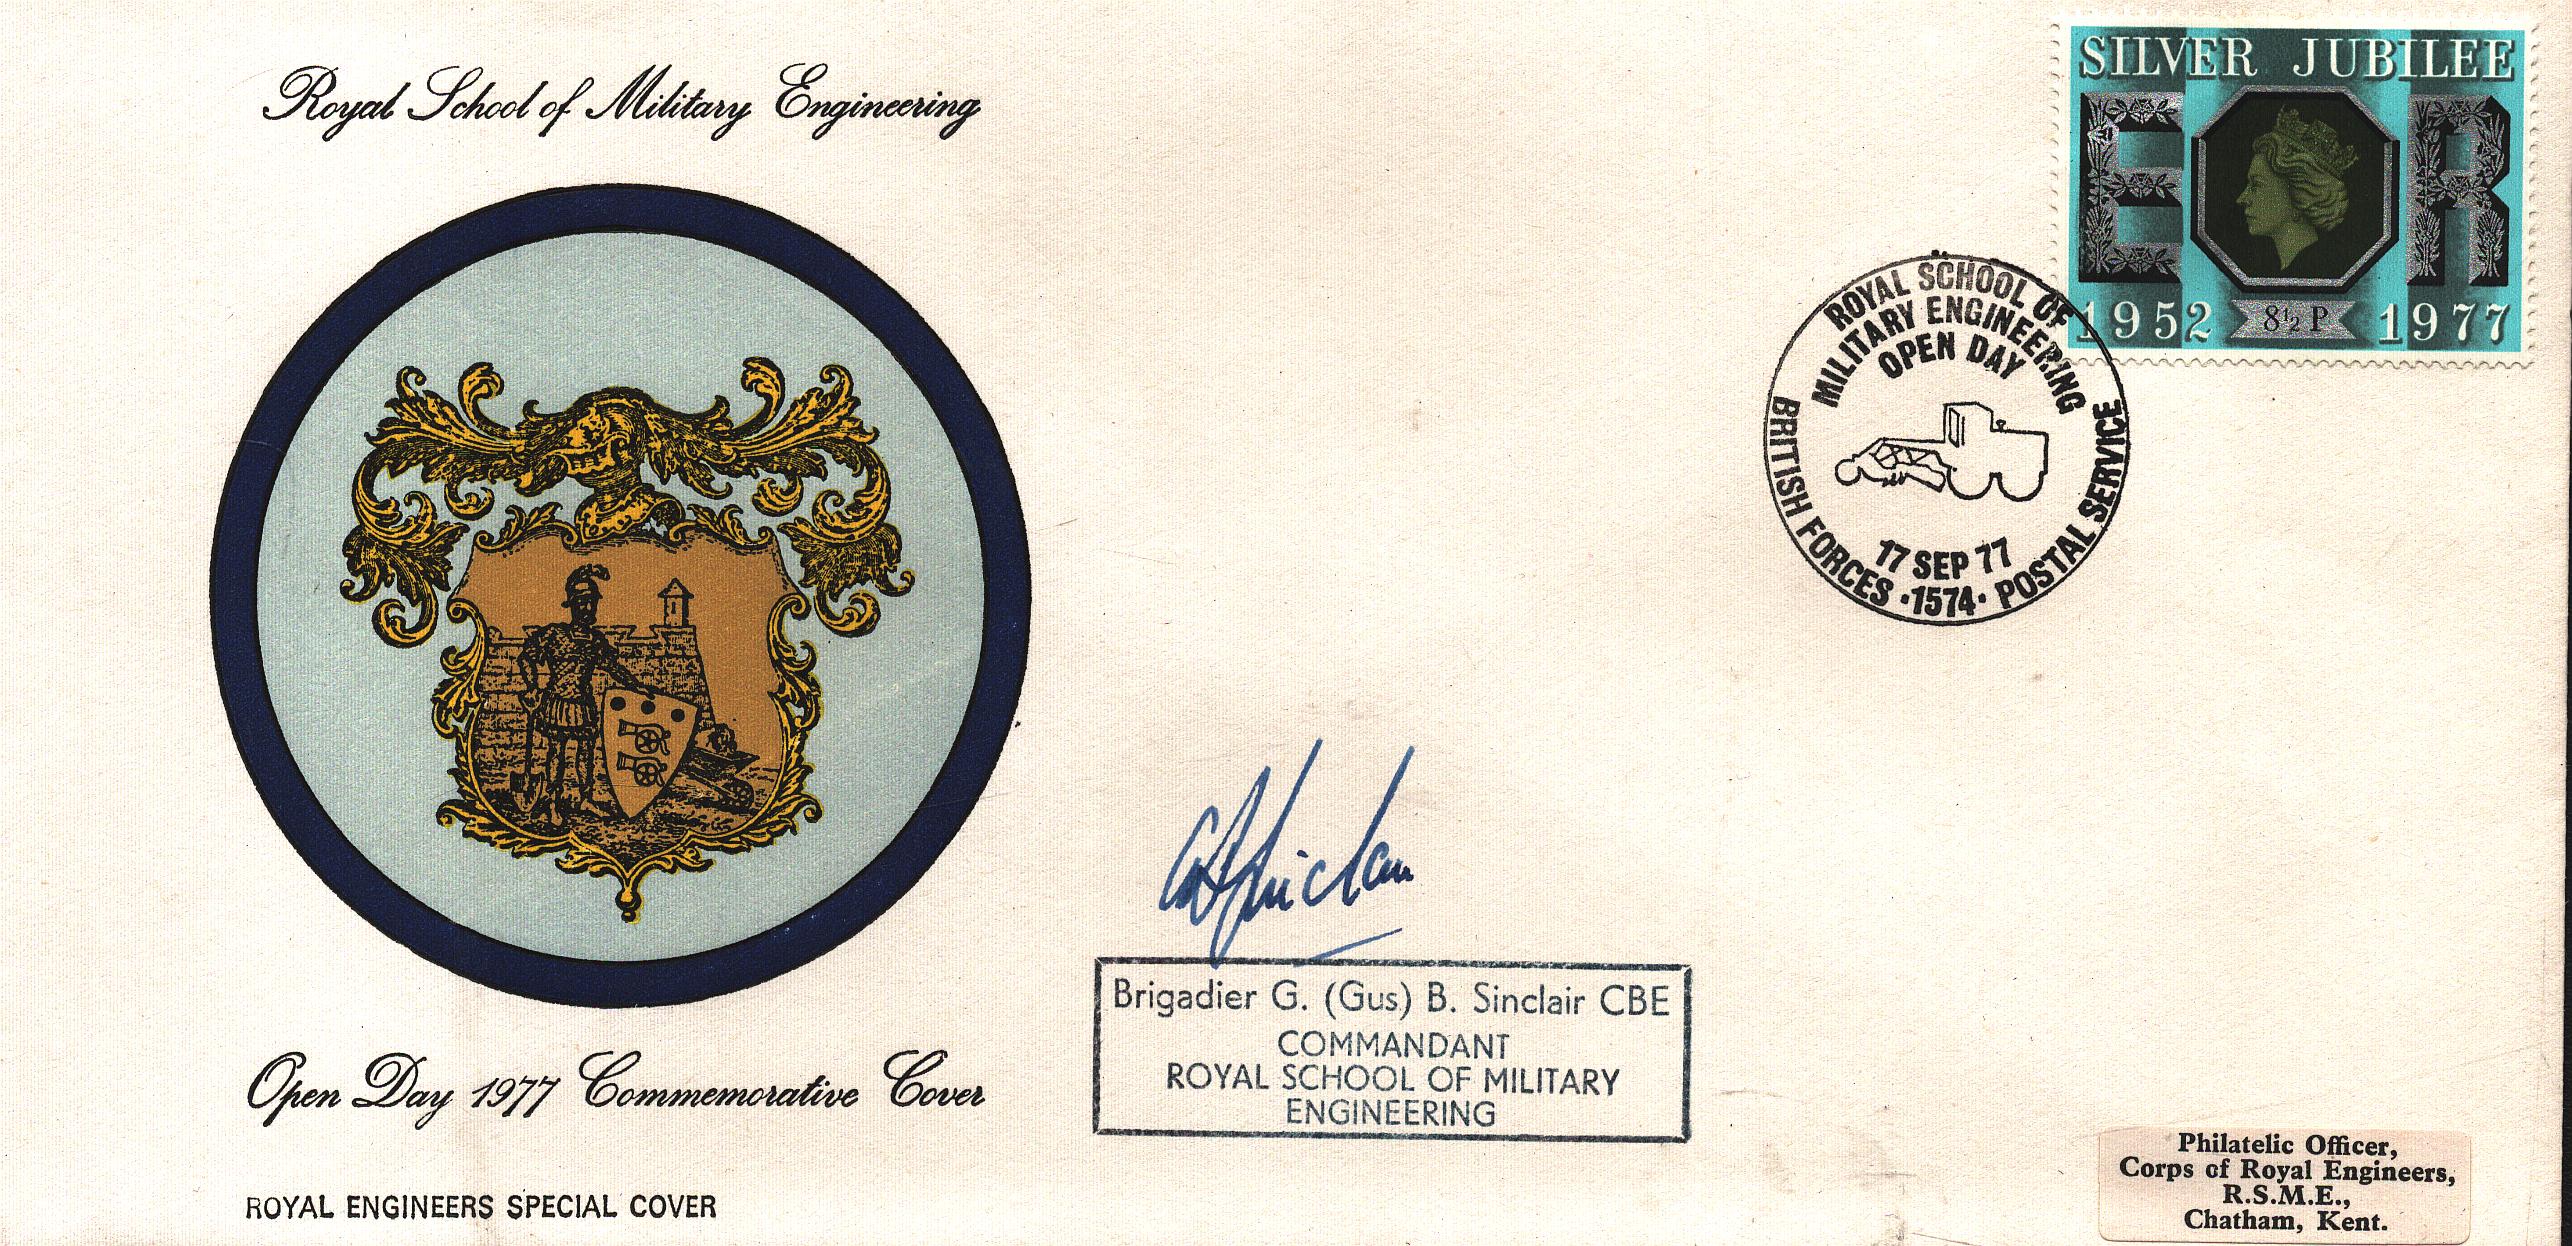 Royal School of Military Engineering
SILVER JUBILEE
E R
1952 8½P 1977
ROYAL SCHOOL OF
MILITARY ENGINEERING
OPEN DAY
17 SEP 77
BRITISH FORCES · 1574 · POSTAL SERVICE
Brigadier G. (Gus) B. Sinclair CBE
COMMANDANT
ROYAL SCHOOL OF MILITARY
ENGINEERING
Open Day 1977 Commemorative Cover
ROYAL ENGINEERS SPECIAL COVER
Philatelic Officer,
Corps of Royal Engineers,
R.S.M.E.,
Chatham, Kent.